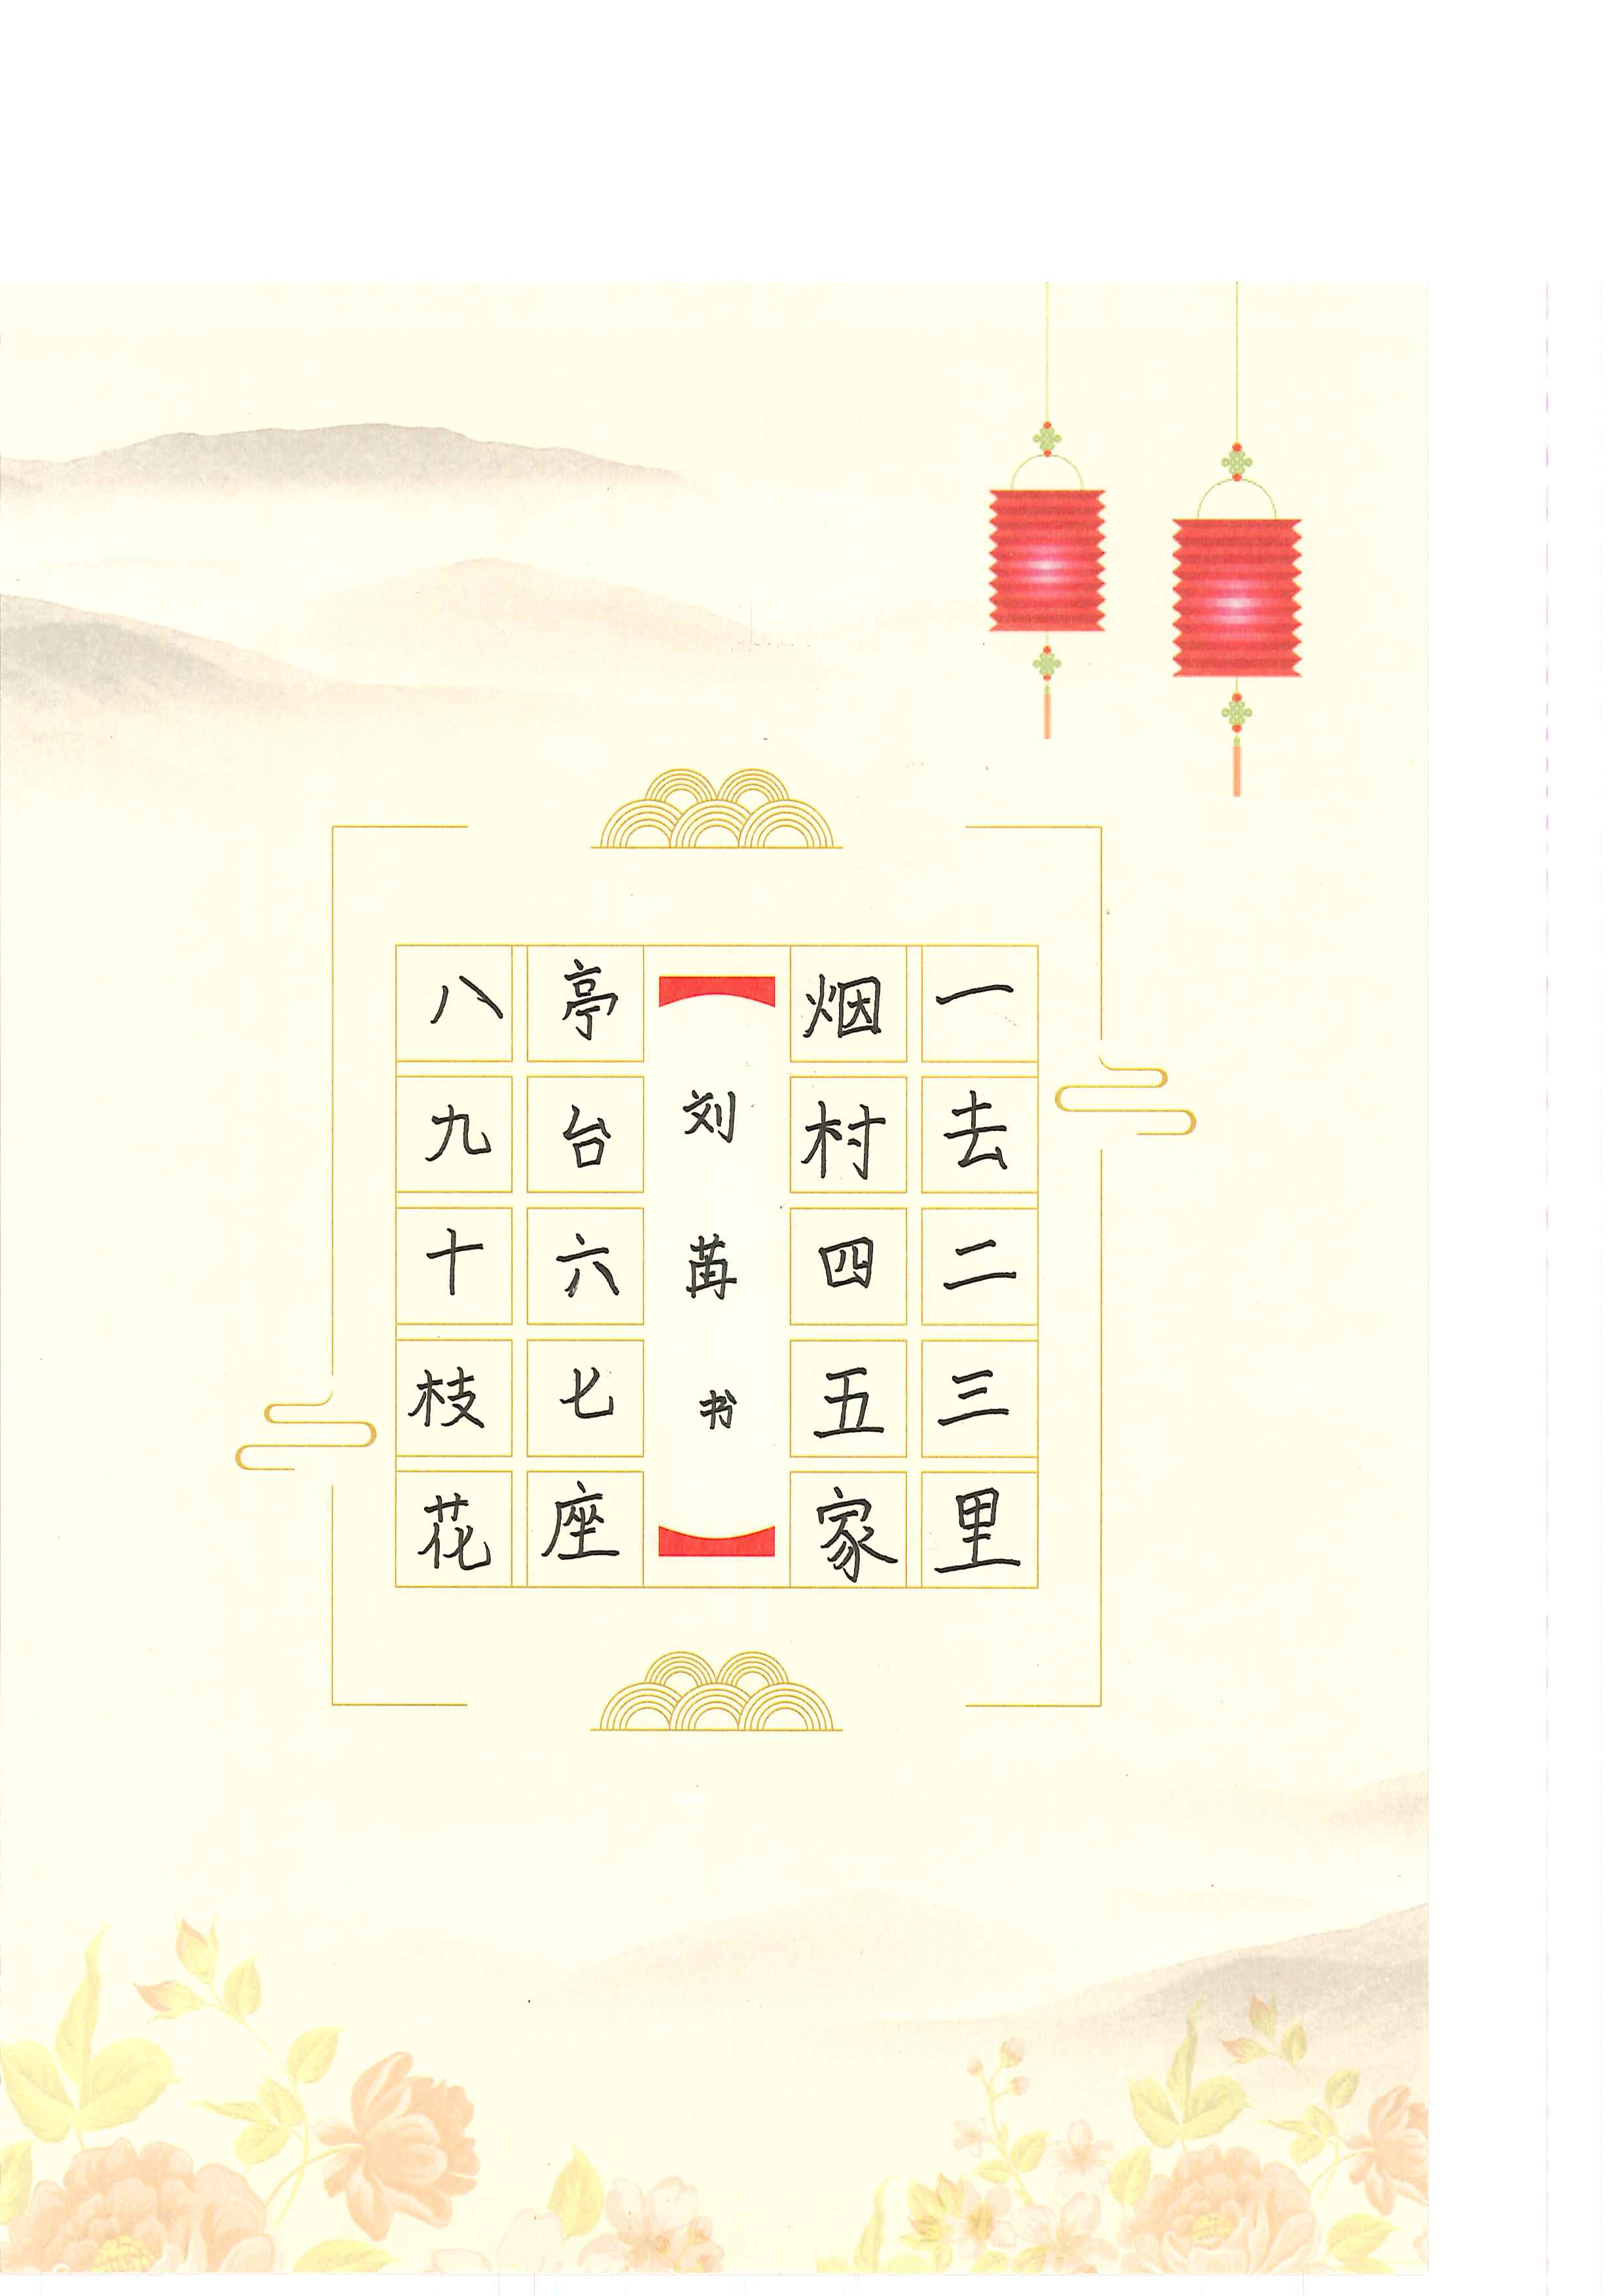 一去二三里
烟村四五家
刘苒书
亭台六七座
八九十枝花